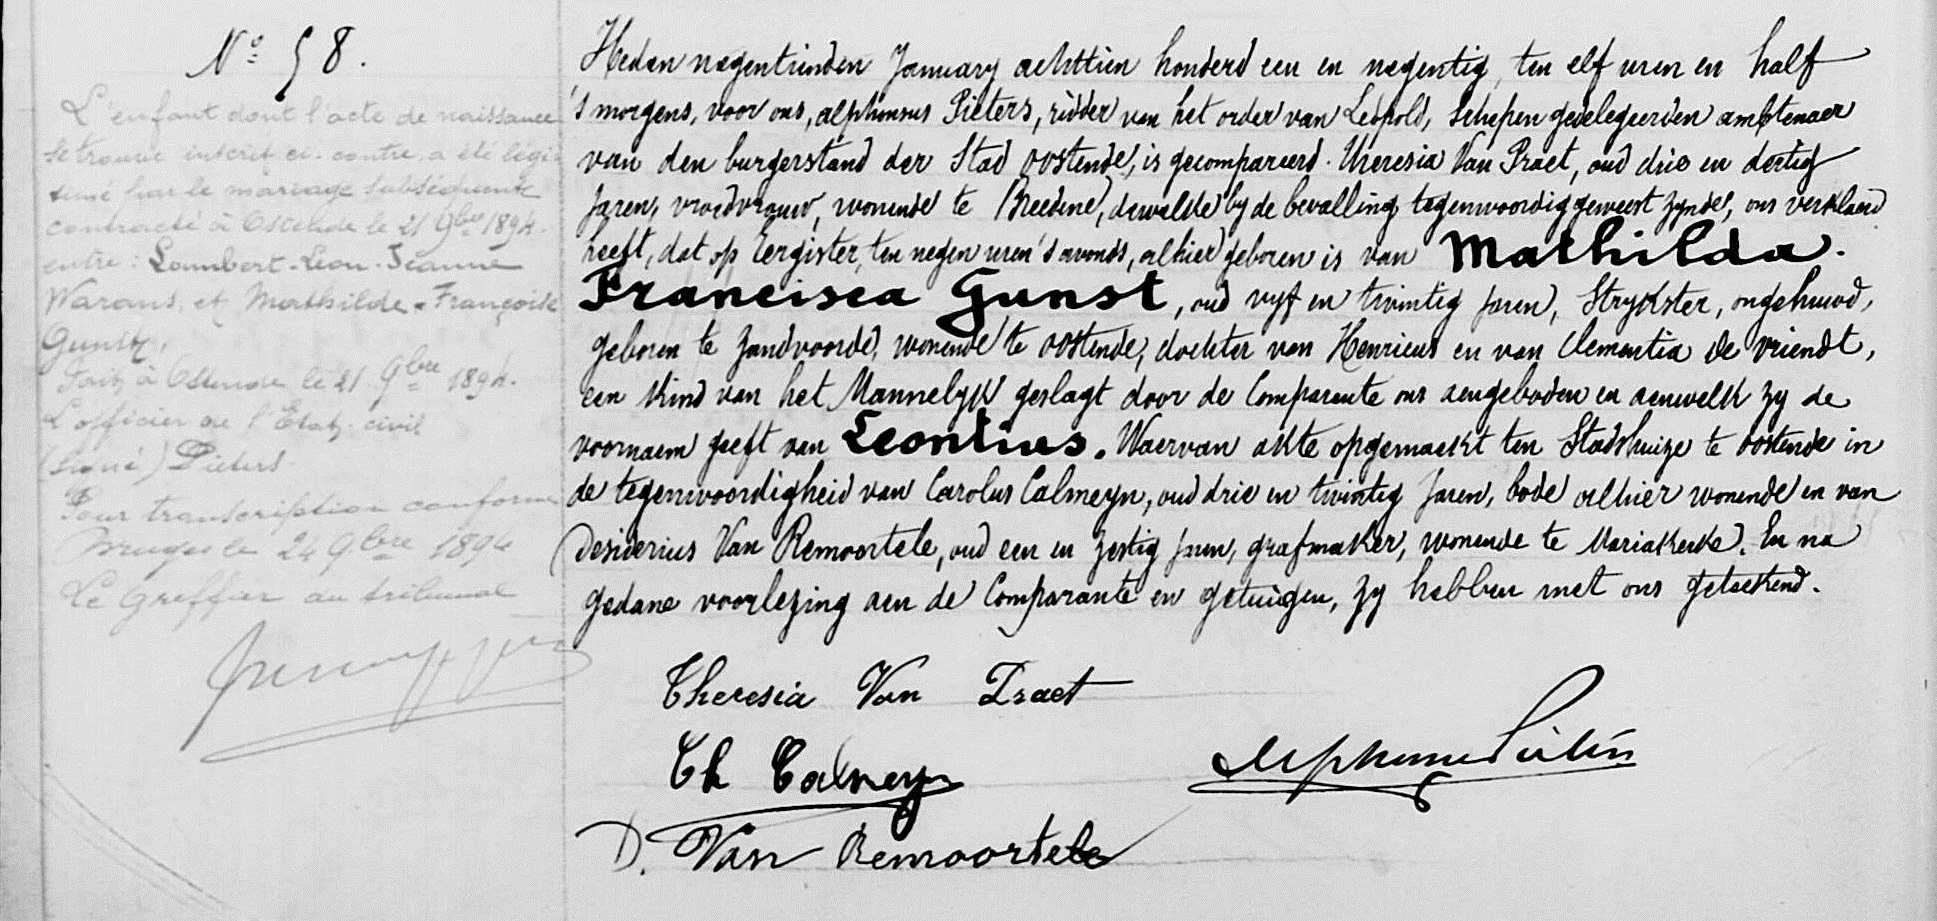 Nº 58.
L'enfant dont l'acte de naissance
se trouve inscrit ci-contre, a été légi-
timé par le mariage subséquent
contracté à Ostende le 21 9bre 1894.
entre: Lambert-Leon-Jeanne
Warans, et Mathilde-Françoise
Gunst.
Fait à Ostende le 21 9bre 1894.
L'officier de l'Etat-civil
(signé) Pieters.
Pour transcription conforme
Bruges le 24 9bre 1894
Le Greffier au tribunal
Heden negentienden January achttien honderd een en negentig, ten elf uren en half
's morgens, voor ons, alphonsus Pieters, ridder van het order van Leopold, Schepen gedelegeerden ambtenaer
van den burgerstand der Stad Oostende, is gecompareerd. Theresia Van Praet, oud drie en dertig
Jaren, vroedvrouw, wonende te Breedene, dewelke by de bevalling tegenwoordig geweest zynde, ons verklaerd
heeft, dat op Eergister, ten negen uren 's avonds, alhier geboren is van Mathilda.
Francisca Gunst, oud vyf en twintig jaren, Strykster, ongehuwd,
geboren te Zandvoorde, wonende te Oostende, dochter van Henricus en van Clementia De Vriendt,
een Kind van het Mannelyk geslagt door de Comparante ons aengeboden en aenwelk zy de
voornaem geeft van Leontius. Waervan akte opgemaekt ten Stadshuize te Oostende in
de tegenwoordigheid van Carolus Calmeyn, oud drie en twintig Jaren, bode alhier wonende en van
Desiderius Van Remoortele, oud een en zestig jaren, grafmaker, wonende te Mariakerke. En na
gedane voorlezing aen de Comparante en getuigen, zy hebben met ons geteekend.
Theresia Van Praet
Ch Calmeyn
Alphonse Pieters
D. Van Remoortele